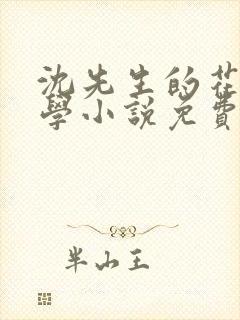 沈先生的花
學小說免費
半山王